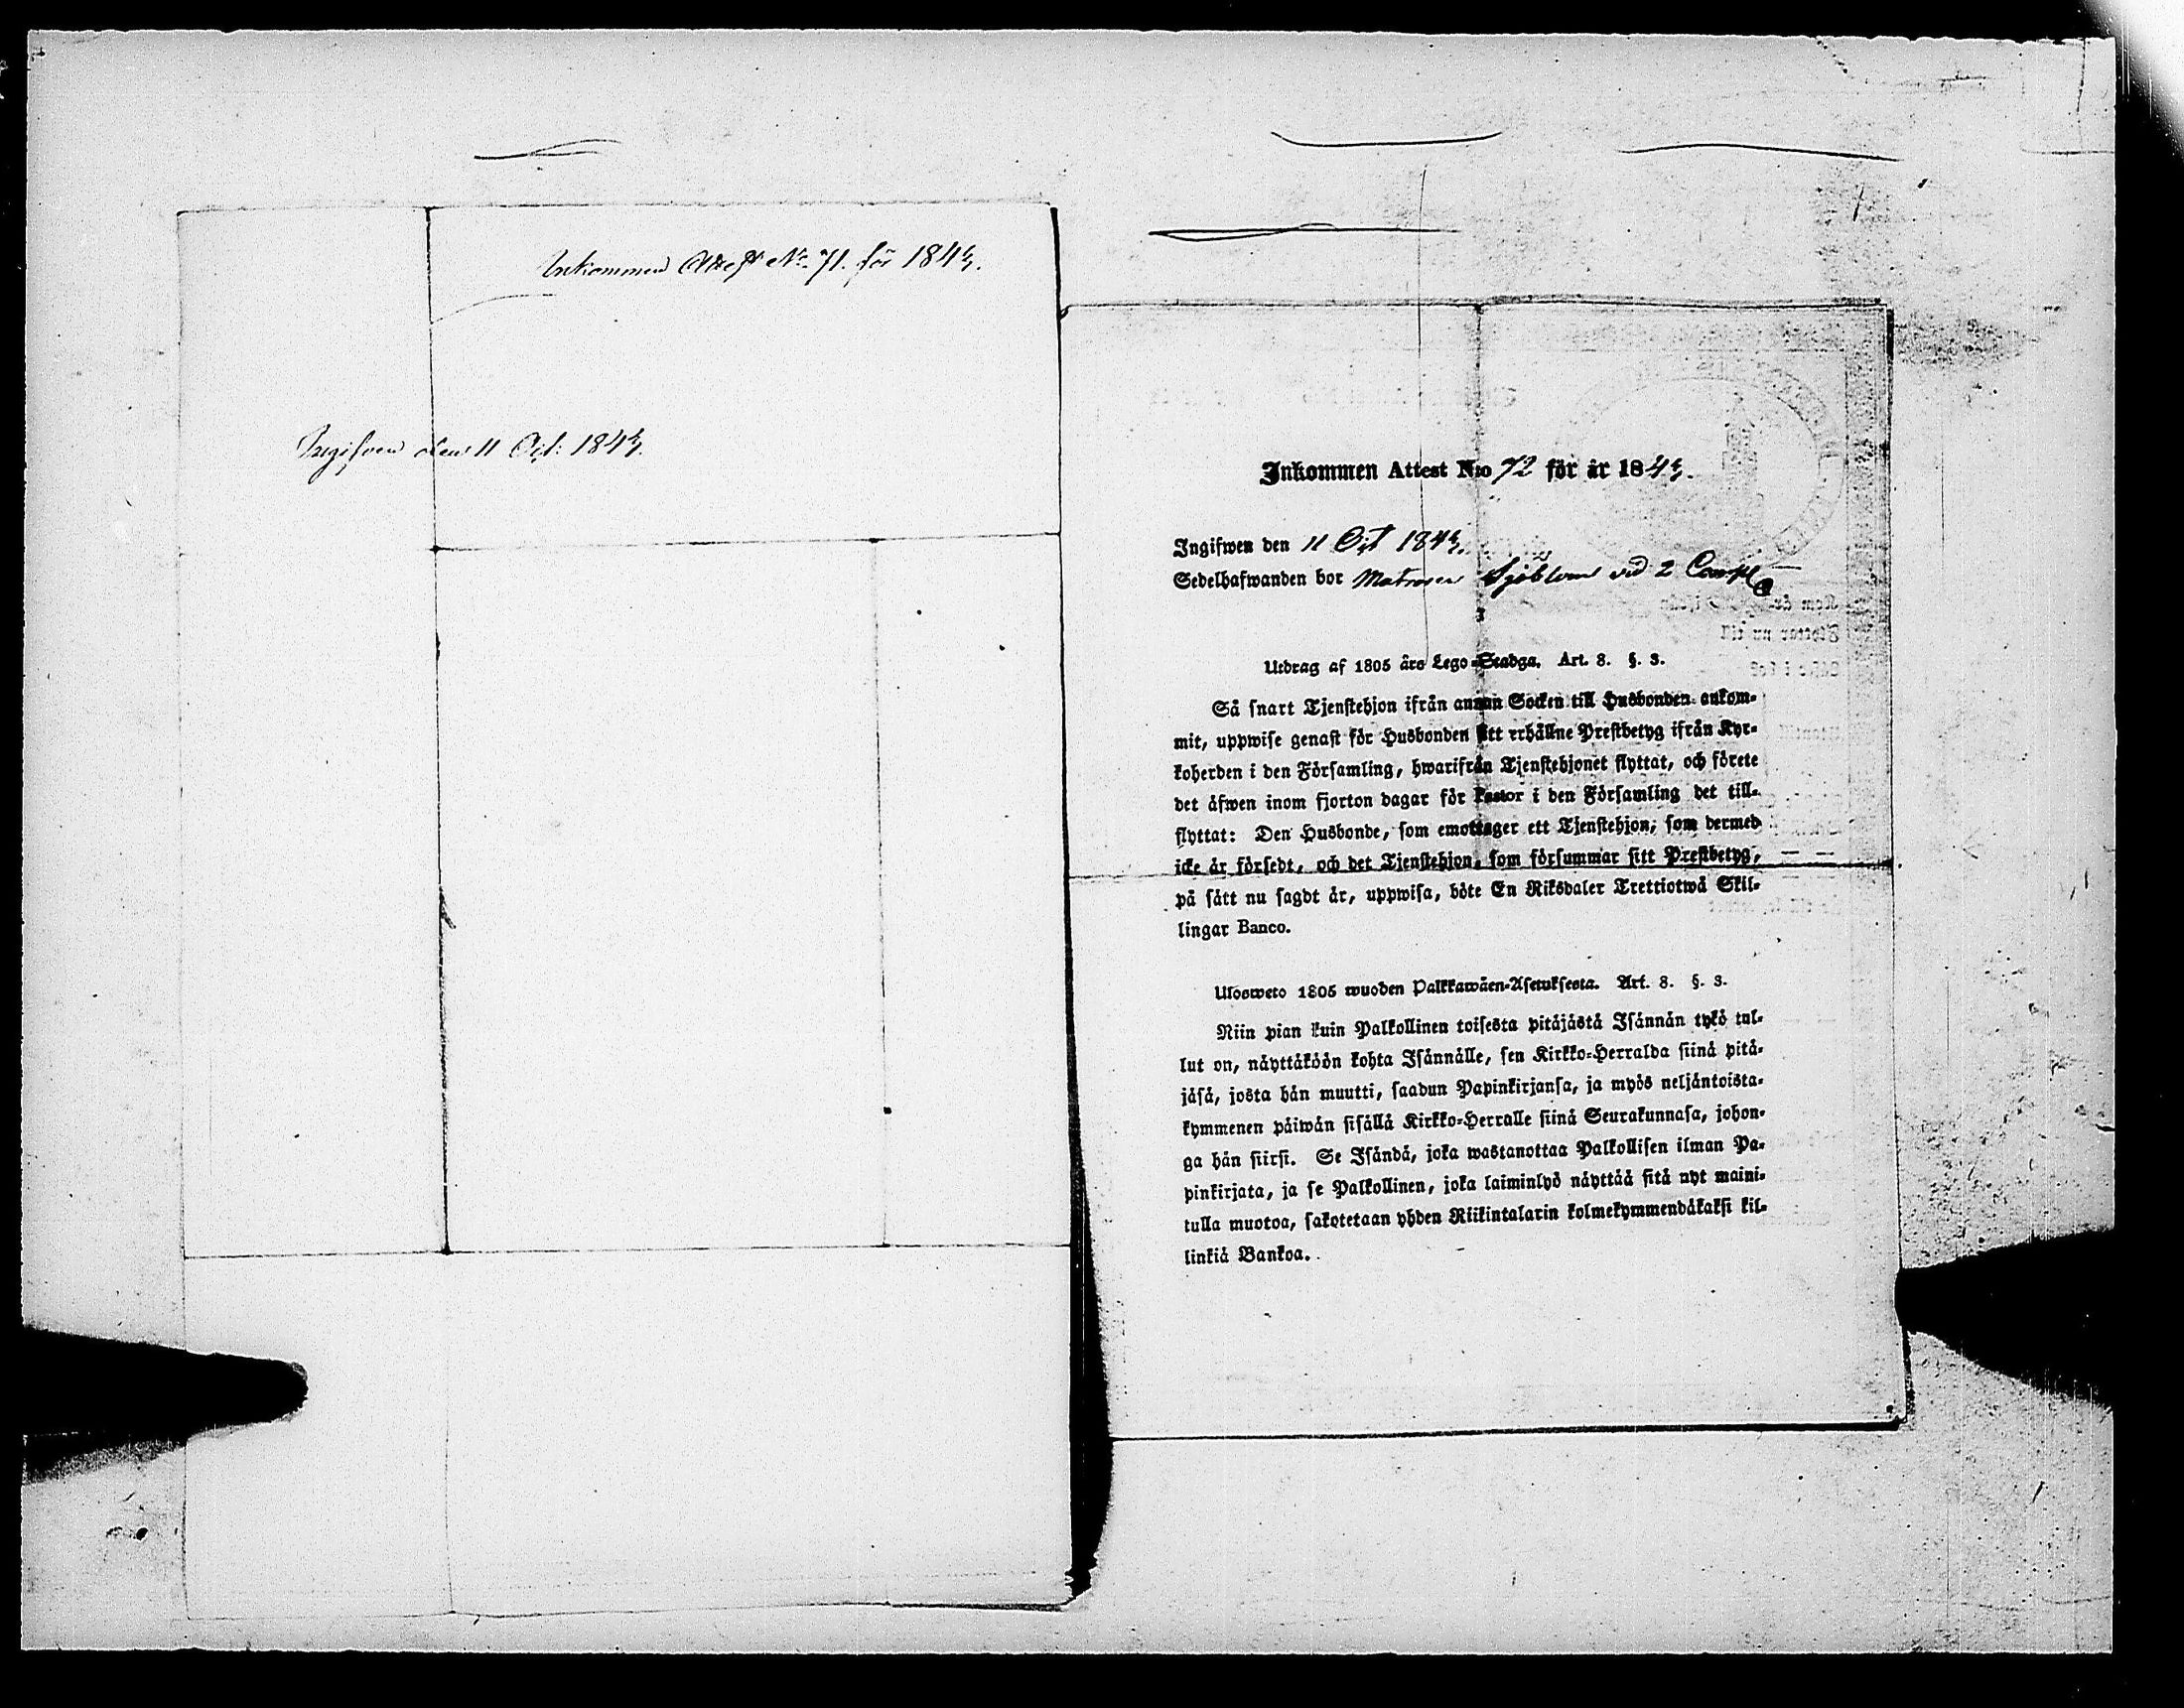 Inkommen Attest No. 71. för 1843.
Ingifven den 11 Oct: 1843.
Inkommen Attest Nro 72 för år 1843.
Ingifwen den 11 Oct 1843.
Sedelhafwanden bor Matrosen Sjöblom vid 2 Comp
Utdrag af 1805 års Lego-Stadga. Art. 8. §. 3.
Så snart Tjenstehjon ifrån annan Socken till Husbonden ankom-
mit, uppwise genast för Husbonden sitt erhållne Prestbetyg ifrån Kyr-
koherden i den Församling, hwarifrån Tjenstehjonet flyttat, och förete
det äfwen inom fjorton dagar för Pastor i den Församling det till-
flyttat: Den Husbonde, som emottager ett Tjenstehjon, som dermed
icke är försedt, och det Tjenstehjon, som försummar sitt Prestbetyg,
på sätt nu sagdt är, uppwisa, böte En Riksdaler Trettiotwå Skil-
lingar Banco.
Ulosweto 1805 wuoden Palkkawäen-Asetuksesta. Art. 8. §. 3.
Niin pian kuin Palkollinen toisesta pitäjästä Isännän tykö tul-
lut on, näyttäköön kohta Isännälle, sen Kirkko-Herralda siinä pitä-
jäsä, josta hän muutti, saadun Papinkirjansa, ja myös neljäntoista-
kymmenen päiwän sisällä Kirkko-Herralle siinä Seurakunnasa, johon-
ga hän siirsi. Se Isändä, joka wastanottaa Palkollisen ilman Pa-
pinkirjata, ja se Palkollinen, joka laiminlyö näyttää sitä nyt maini-
tulla muotoa, sakotetaan yhden Riikintalarin kolmekymmendäkaksi kil-
linkiä Bankoa.